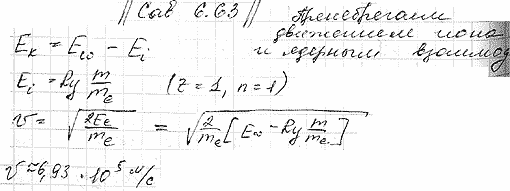 || Сав 6.63 || Пренебрегаем
движением иона
и ядерным взаимод
E_k = E_ω - E_i
E_i = Ry m/m_e (z = 1, n = 1)
v = √(2E_e/m_e) = √(2/m_e [E_ω - Ry m/m_e])
v ≈ 6,93 · 10^5 м/с